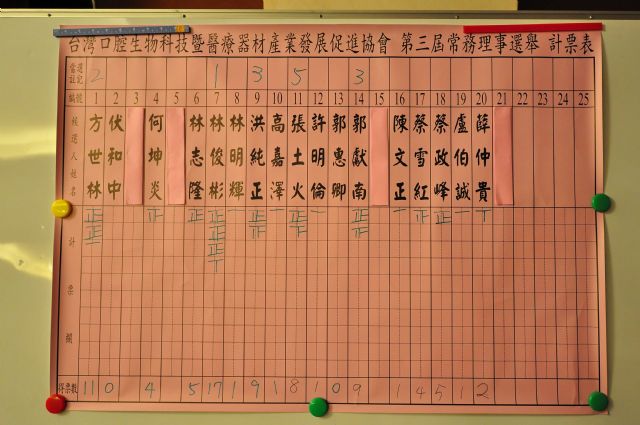 台灣口腔生物科技暨醫療器材產業發展促進協會 第三屆常務理事選舉 計票表
當選註記 2 1 3 5 3
編號 1 2 3 4 5 6 7 8 9 10 11 12 13 14 15 16 17 18 19 20 21 22 23 24 25
候選人姓名 方世林 伏和中 何坤炎 林志隆 林俊彬 林明輝 洪純正 高嘉澤 張土火 許明倫 郭惠卿 郭獻南 陳文正 蔡雪紅 蔡政峰 盧伯誠 薛仲貴
計票欄
得票數 11 0 4 5 17 1 9 1 8 1 0 9 1 4 5 1 2